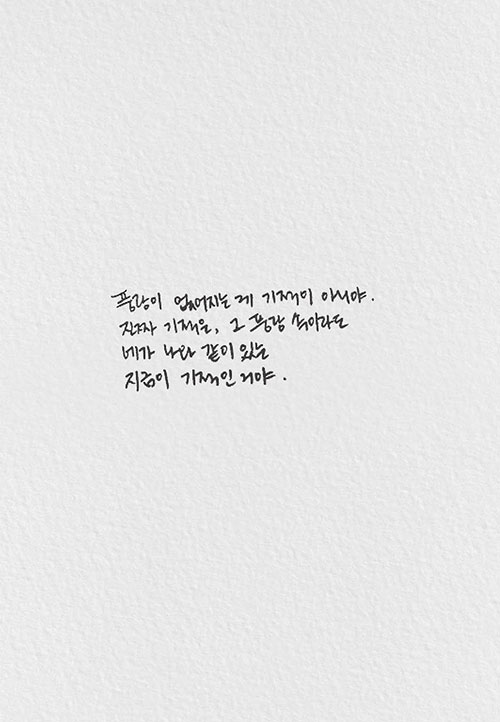 풍랑이 없어지는 게 기적이 아니야.
진짜 기적은, 그 풍랑 속이라도
네가 나와 같이 있는
지금이 기적인 거야.